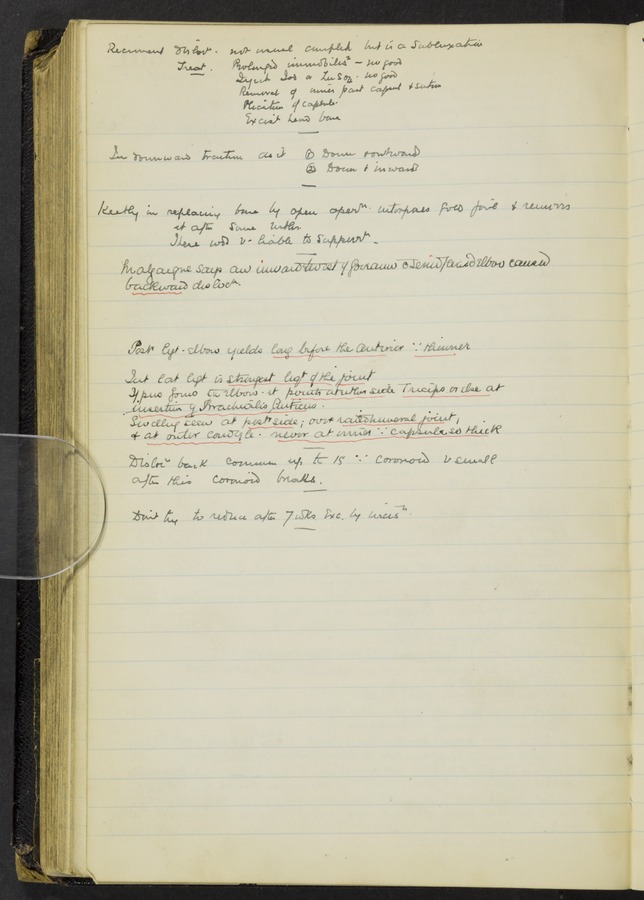 Recurrent Disloc. not usual complete but is a Subluxation
Treat. Prolonged immobilisn - no good
Inject Iod or no good
Removal of inner part capsul & suture
Plication of capsule
Excist head bone
In downward traction as it ① Down & outward
② Down & inward
Keetley in replacing bone by open opern. interposes Gold foil & removes
it after some
There wd v. liable to Suppurn.
Malgaigne says an inward twist of forearm c semiflexed elbow caused
backwardislocn.
Postr ligt. elbow yields long before the anterior ∵ thinner
Int lat ligt is strongest ligt of the joint
If pus forms in elbow it points at either side Triceps or else at
insertion of Brachialis Anticus.
Swelling seen at postr side, over radiohumeral joint,
& at outer condyle. never at inner ∵ capsule so thick
Dislocn back common up to 15 ∵ coronoid v small
after this coronoid breaks.
Don't try to reduce after 7 wks Exc. by incisn.